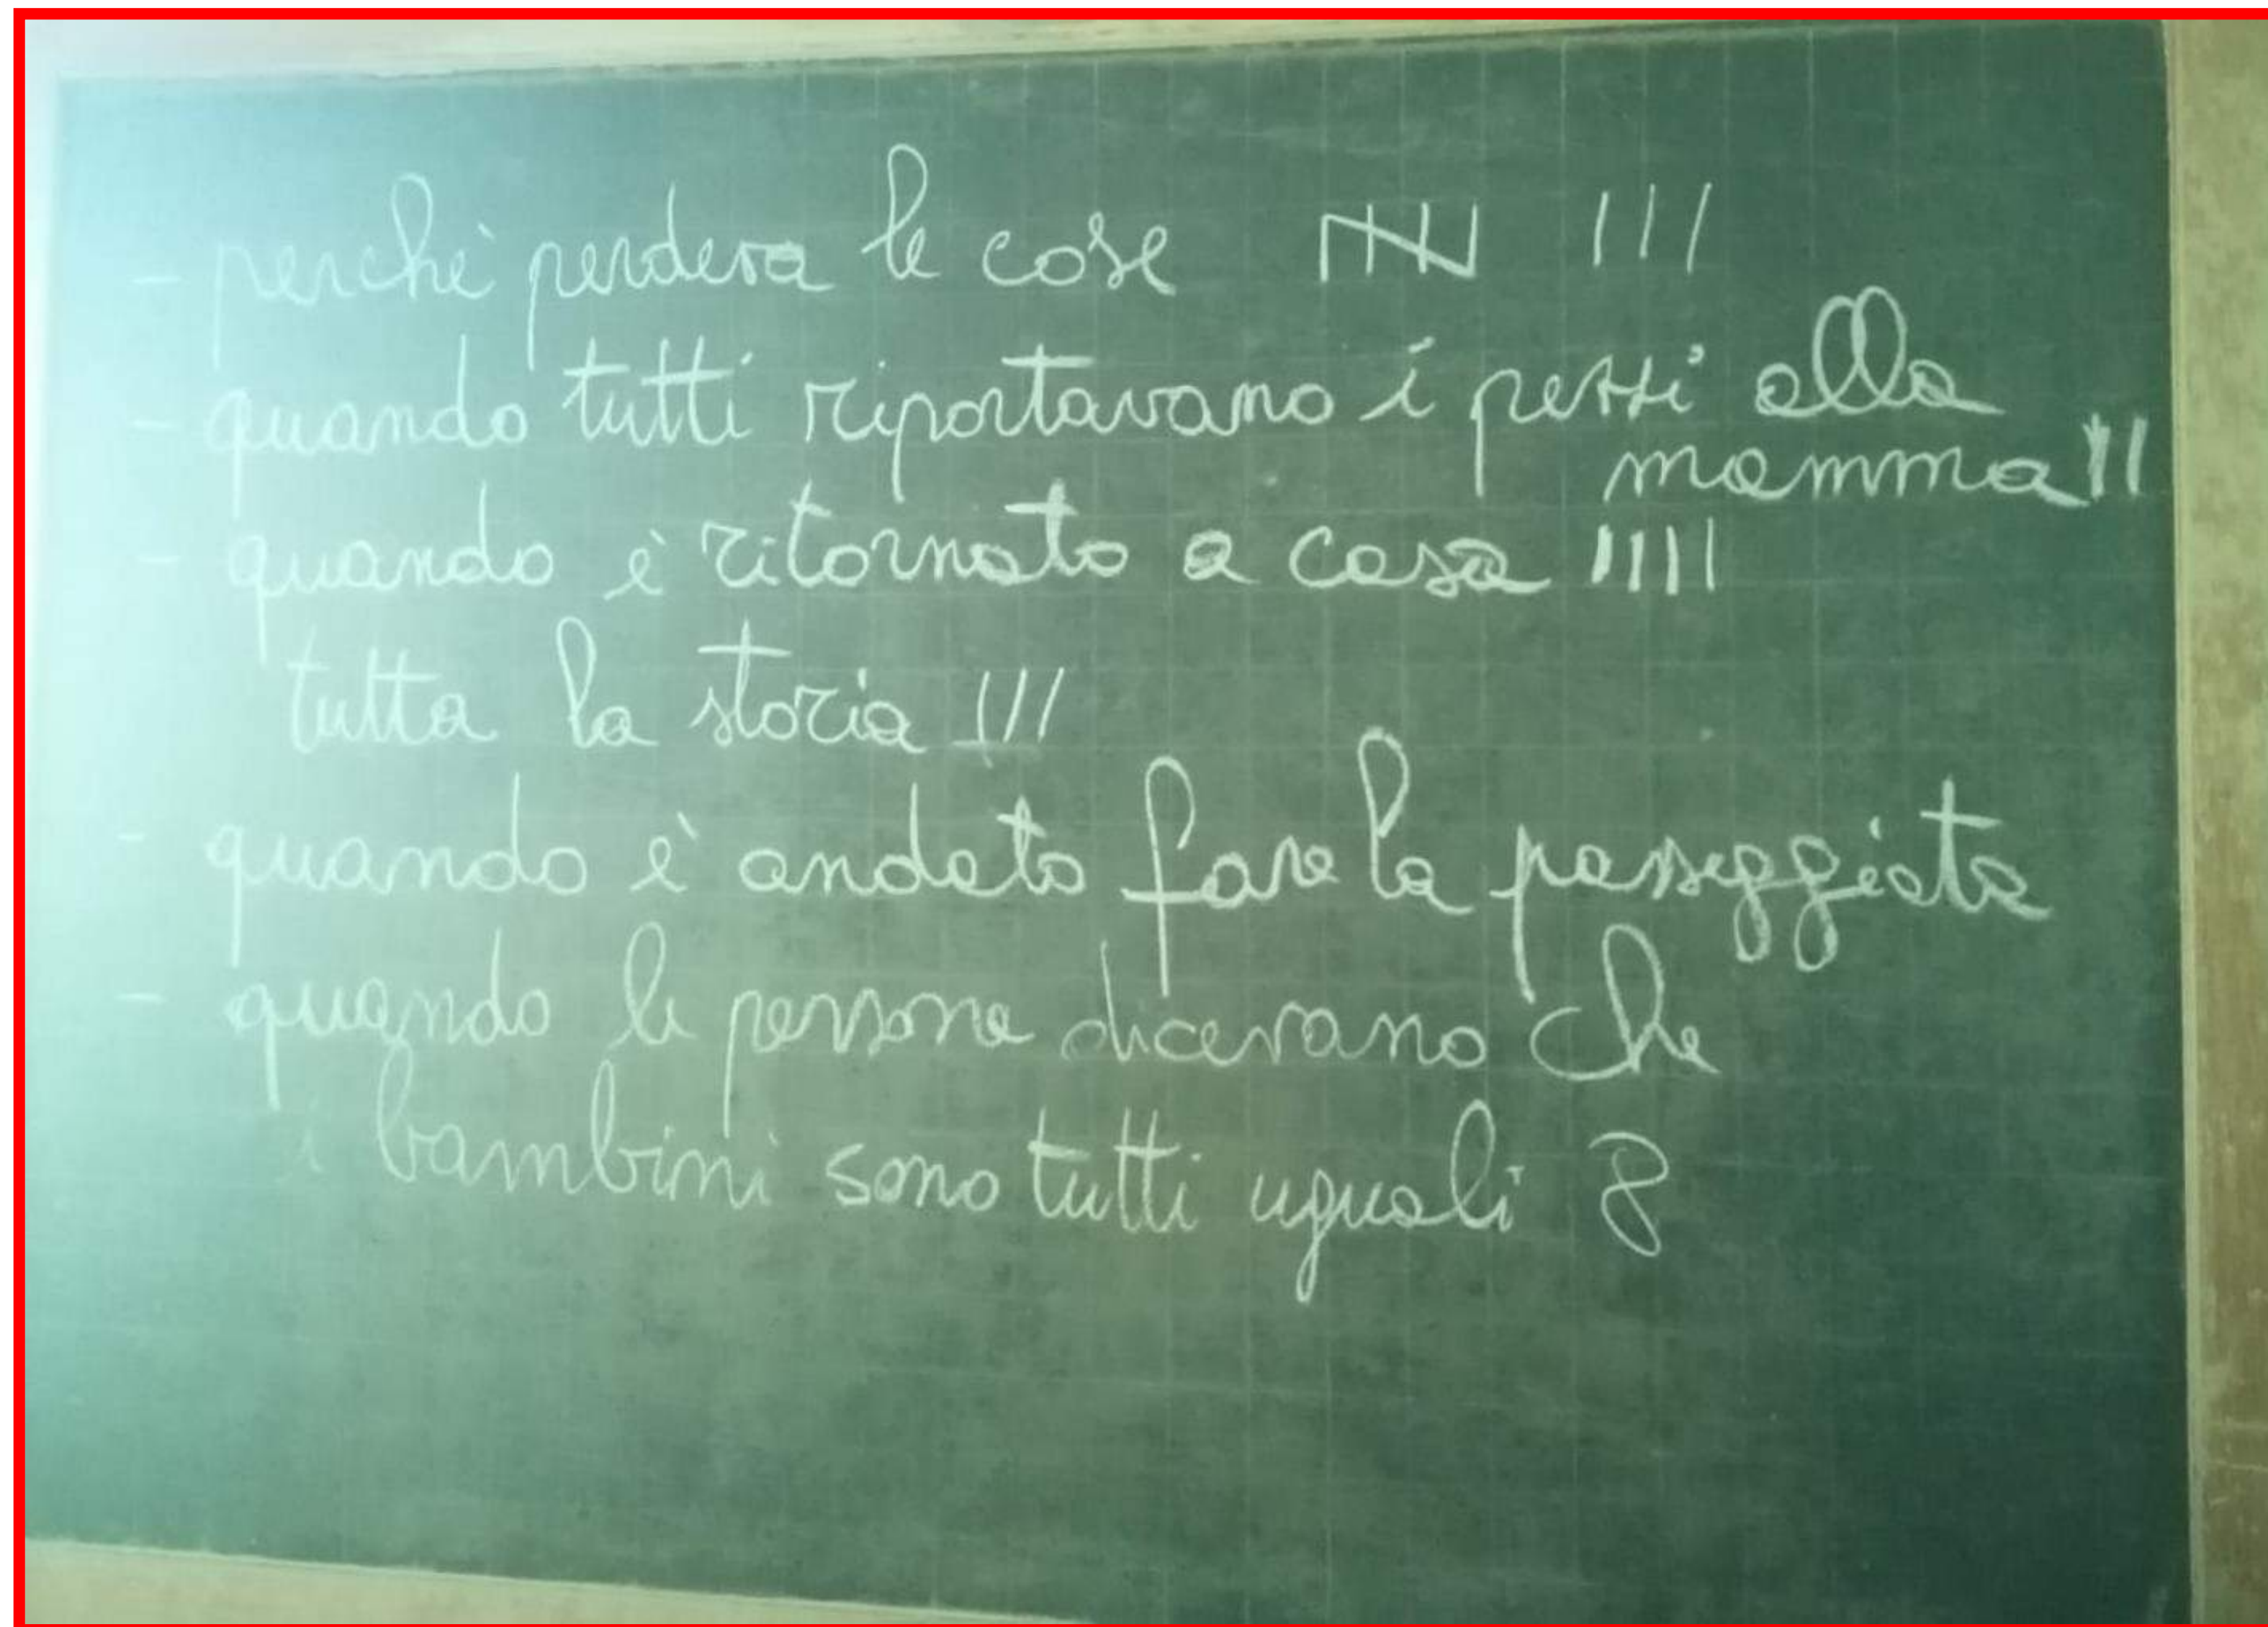 - perchè perdeva le cose 𝍸 III
- quando tutti riportavano i pezzi alla
mamma II
- quando è ritornato a casa IIII
tutta la storia III
- quando è andato fare la passeggiata
- quando le persone dicevano che
i bambini sono tutti uguali 8